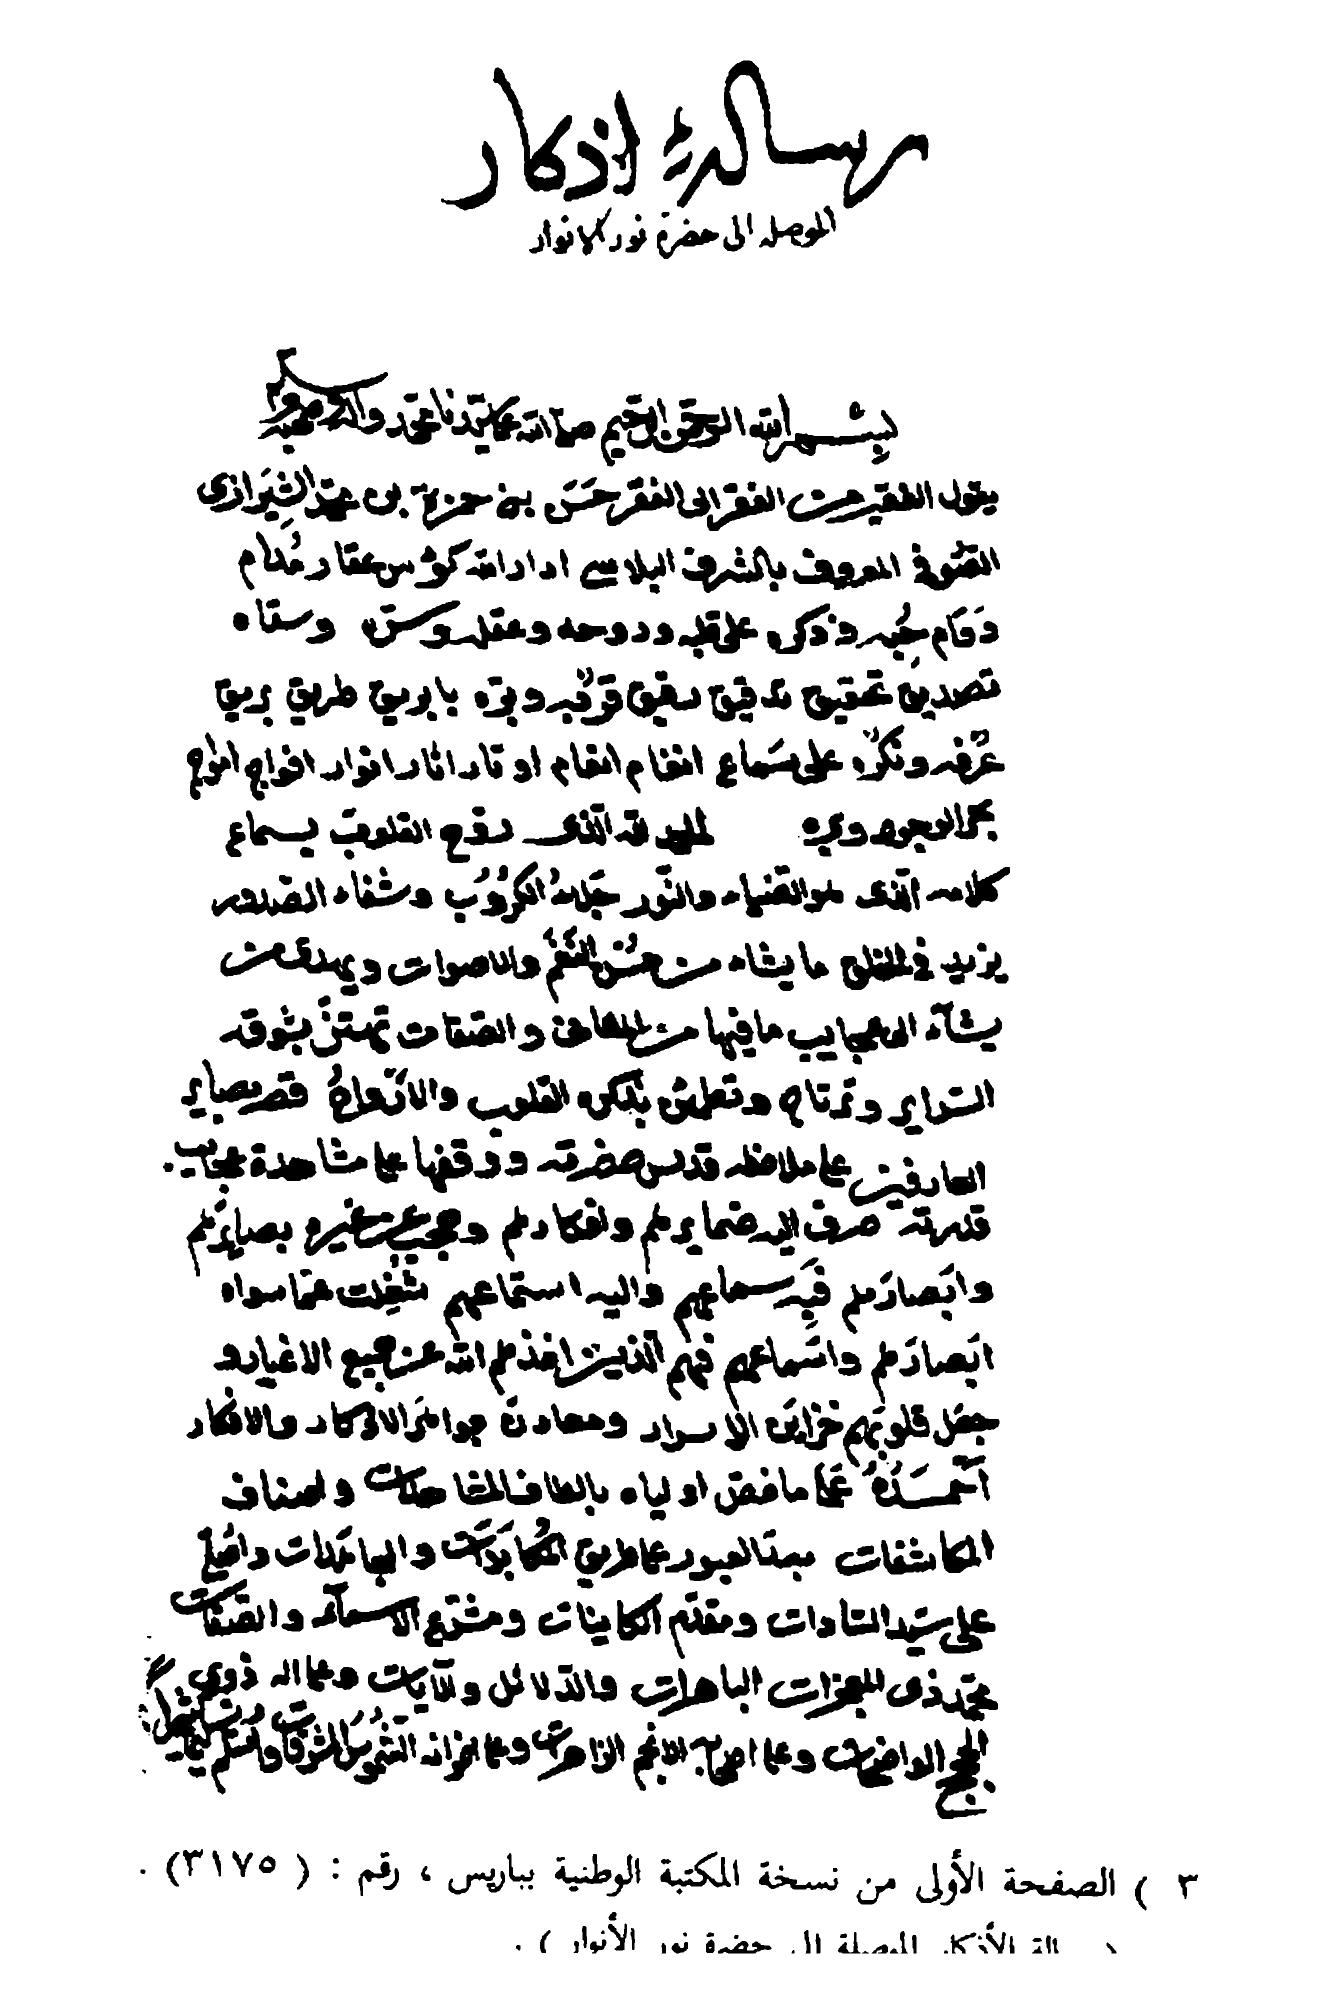 رسالۀ اذكار
الموصله الى حضرة نور الانوار
بسم الله الرحمن الرحيم صلى الله على سيدنا محمد واله وصحبه وسلم
يقول الفقير من الفقر الى الفقر حسن بن حمزة بن محمد الشيرازى
الصوفى المعروف بالشرف البلاسى ادار الله كؤس عقار مدام
دمام حبه وذكره على قلبه وروحه وعقله وسره وسقاه
تصديق تحقيق تدقيق قربه وبره باباريق طريق بريق
عرفه ونكره على سماع انغام اوتار اثار انوار افواج امواج
بحر الوجود وبره الحمد لله الذى روح القلوب بسماع
كلامه الذى هو الضياء والنور جلاء الكروب وشفاء الصدور
يزيد فى الخلق ما يشاء من حسن النغم والاصوات ويهدى من
يشآء الى عجايب ما فيها من المعانى والصفات تهتز بشوقه
السراير وترتاح وتطمئن بذكره القلوب والارواح قصر بصاير
العارفين على ملاحظه قدس حضرته ووقفها على مشاهدة عجايب
قدرته صرف اليه ضمايرهم وافكارهم وحجب عن غيره بصايرهم
وابصارهم فبه سماعهم واليه استماعهم شغلت عما سواه
ابصارهم واسماعهم فهم الذين اخذهم الله عن جميع الاغيار و
جعل قلوبهم خزاين الاسرار ومعادن جواهر الاذكار والافكار
احمده على ما خص اولياه بالطاف المشاهدات واصناف
المكاشفات بعد العبور على طريق المكابدات والمجاهدات واصلى
على سيد السادات ومقدم الكاينات ومشرع الاسمآء والصفات
محمد ذى المعجزات الباهرات والدلائل والآيات وعلى اله ذوى
الحجج الواضحات وعلى اصحابه الانجم الزاهرات وعلى اخوانه الشموس المشرقات وسلم تسليما كثيرا
٣ ) الصفحة الأولى من نسخة المكتبة الوطنية بباريس ، رقم : ( ٣١٧٥) .
( رسالة الأذكار الموصلة إلى حضرة نور الأنوار ) .